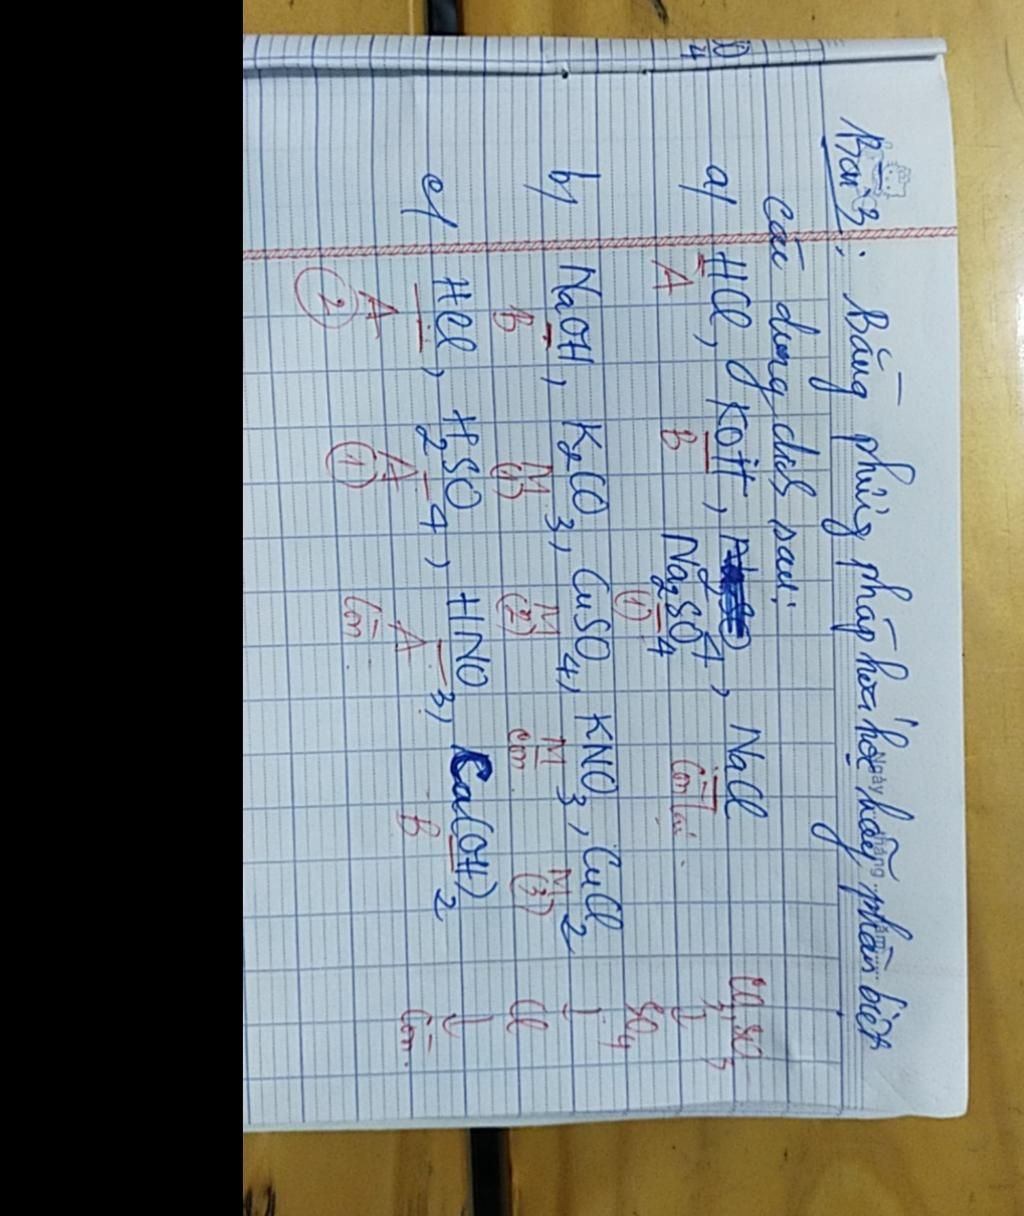 Bài 3: Bằng phương pháp hóa học hãy phân biệt
các dung dịch sau:
a/ HCl, KOH, Na2SO4, NaCl
A B (1) Còn lại.
b/ NaOH, K2CO3, CuSO4, KNO3, CuCl2
B M (1) M (2) M còn M (3)
c/ HCl, H2SO4, HNO3, Ca(OH)2
A A A B
(2) (1) Còn
CO3, SO3
↓
SO4
↓
Cl
↓
Còn.
Ngày tháng năm